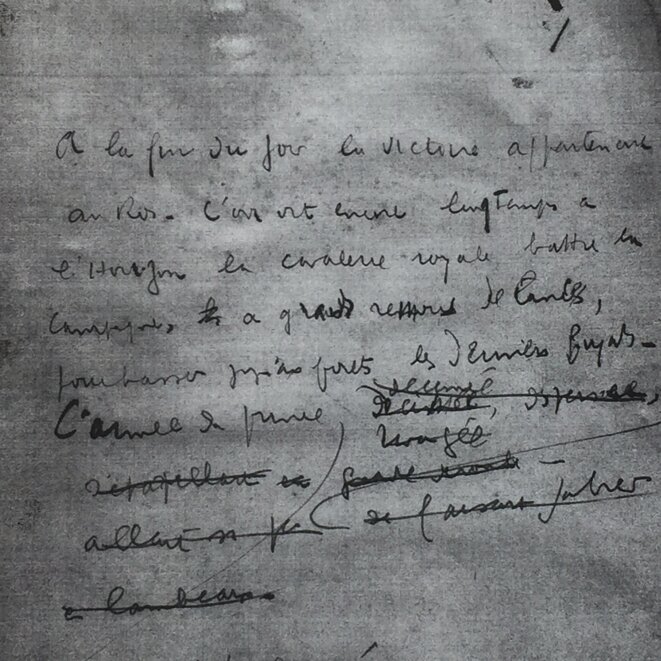 A la fin du jour la victoire appartenait
au Roi. L'on vit encore longtemps à
l'Horizon la cavalerie royale battre la
campagne, à grands remous de lances,
pourchasser jusqu'aux forêts les derniers fuyards.
décimée
L'armée du prince, décimée, dispersée,
rongée
s'éparpillant en
allant se faire sabrer
en lambeaux